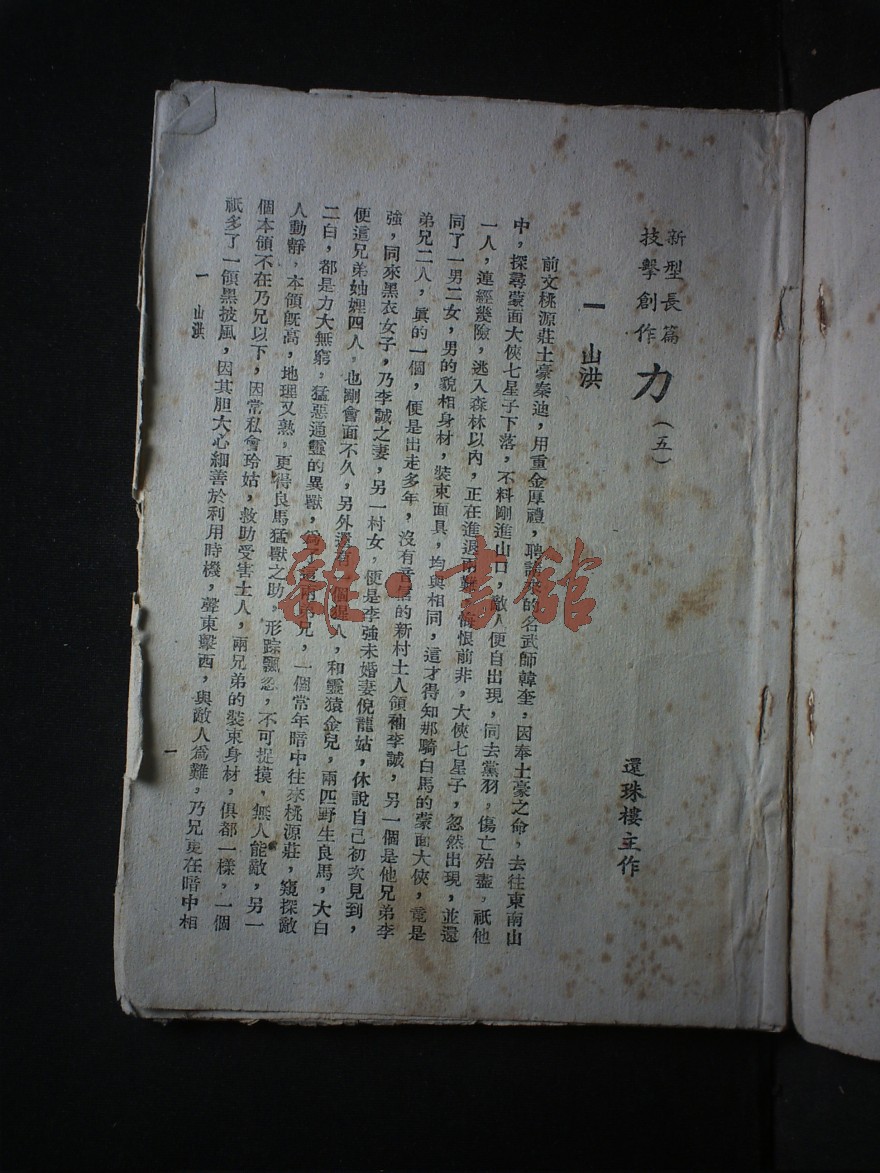 新型長篇
技擊創作
力(五)
還珠樓主作
一 山洪
前文桃源莊土豪秦迪,用重金厚禮,聘請來的名武師韓奎,因奉土豪之命,去往東南山
中,探尋蒙面大俠七星子下落,不料剛進山口,敵人便自出現,同去黨羽,傷亡殆盡,祇他
一人,連經幾險,逃入森林以內,正在進退兩難,悔恨前非,大俠七星子,忽然出現,並還
同了一男二女,男的貌相身材,裝束面具,均與相同,這才得知那騎白馬的蒙面大俠,竟是
弟兄二人,眞的一個,便是出走多年,沒有音信的新村土人領袖李誠,另一個是他兄弟李
強,同來黑衣女子,乃李誠之妻,另一村女,便是李強未婚妻倪龍姑,休說自己初次見到,
便這兄弟妯娌四人,也剛會面不久,另外還有一個猩人,和靈猿金兒,兩匹野生良馬,大白
二白,都是力大無窮,猛惡通靈的異獸,爲了這兩弟兄,一個常年暗中往來桃源莊,窺探敵
人動靜,本領旣高,地理又熟,更得良馬猛獸之助,形踪飄忽,不可捉摸,無人能敵,另一
個本領不在乃兄以下,因常私會玲姑,救助受害土人,兩兄弟的裝束身材,俱都一樣,一個
祇多了一領黑披風,因其胆大心細善於利用時機,聲東擊西,與敵人爲難,乃兄更在暗中相
一 山洪
一
雜·書館